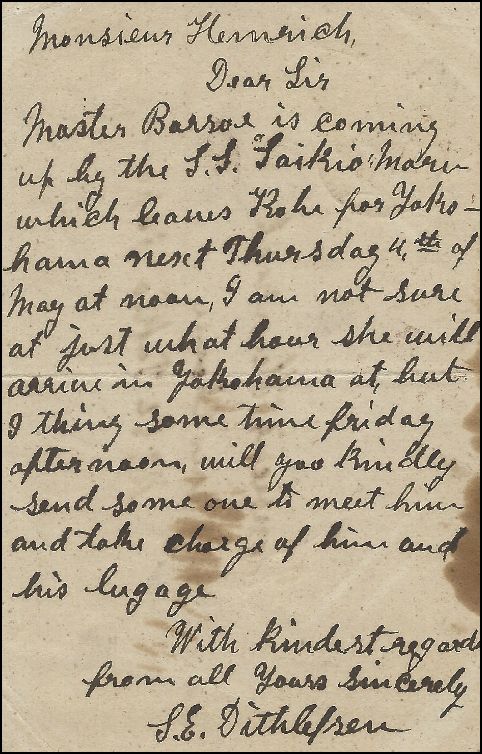 Monsieur Hemrich,
Dear Sir
Master Barroe is coming
up by the S.S. "Saikio Maru
which leaves Kobe for Yoko-
hama next Thursday 4,th of
May at noon, I am not sure
at just what hour she will
arrive in Yokohama at, but
I thing some time friday
afternoon, will you kindly
send some one to meet him
and take charge of him and
his lugage
With kindest regards
from all Yours sincerely
S.E. Dithlefsen